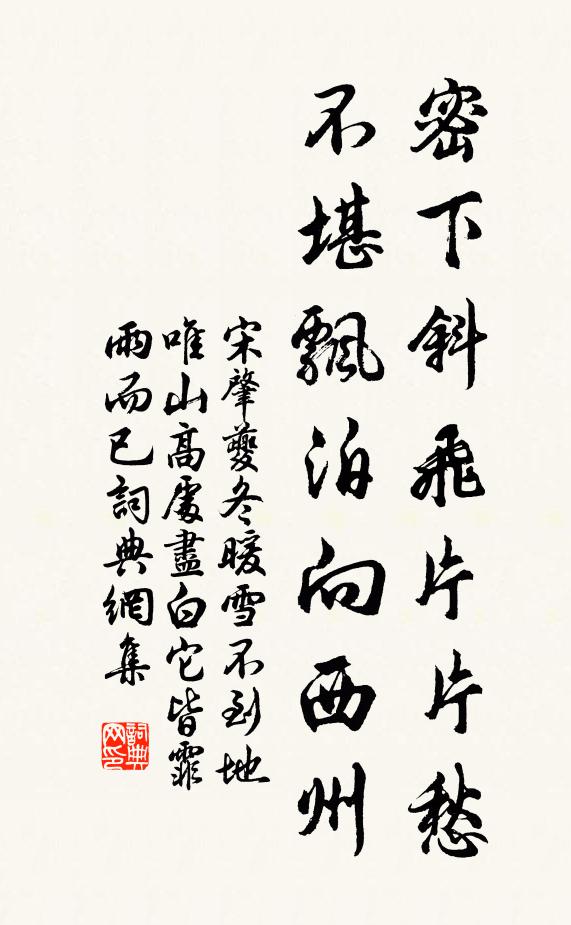 密下斜飛片片愁
不堪飄泊向西州
宋肇夔冬暖雪不到地
唯山高處盡白它皆霏
雨而已詞典網集
詞典
网印